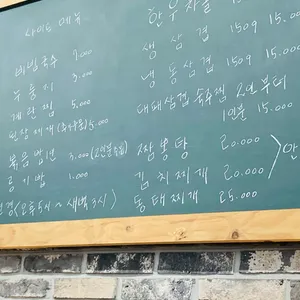 사이드 메뉴
비빔국수 7.000
두통치 3.000
계란찜 5.000
된장찌개 (추가주문) 5.000
볶음밥 1인 3.000 (2인분부터)
공기밥 1.000
(오후 5시 ~ 새벽 3시)
한우차돌 150g
생삼겹 150g 15.000
냉동삼겹 150g 15.000
대패삼겹 2인부터
1인분 15.000
짬뽕탕 20.000
김치찌개 20.000
동태찌개 25.000
안